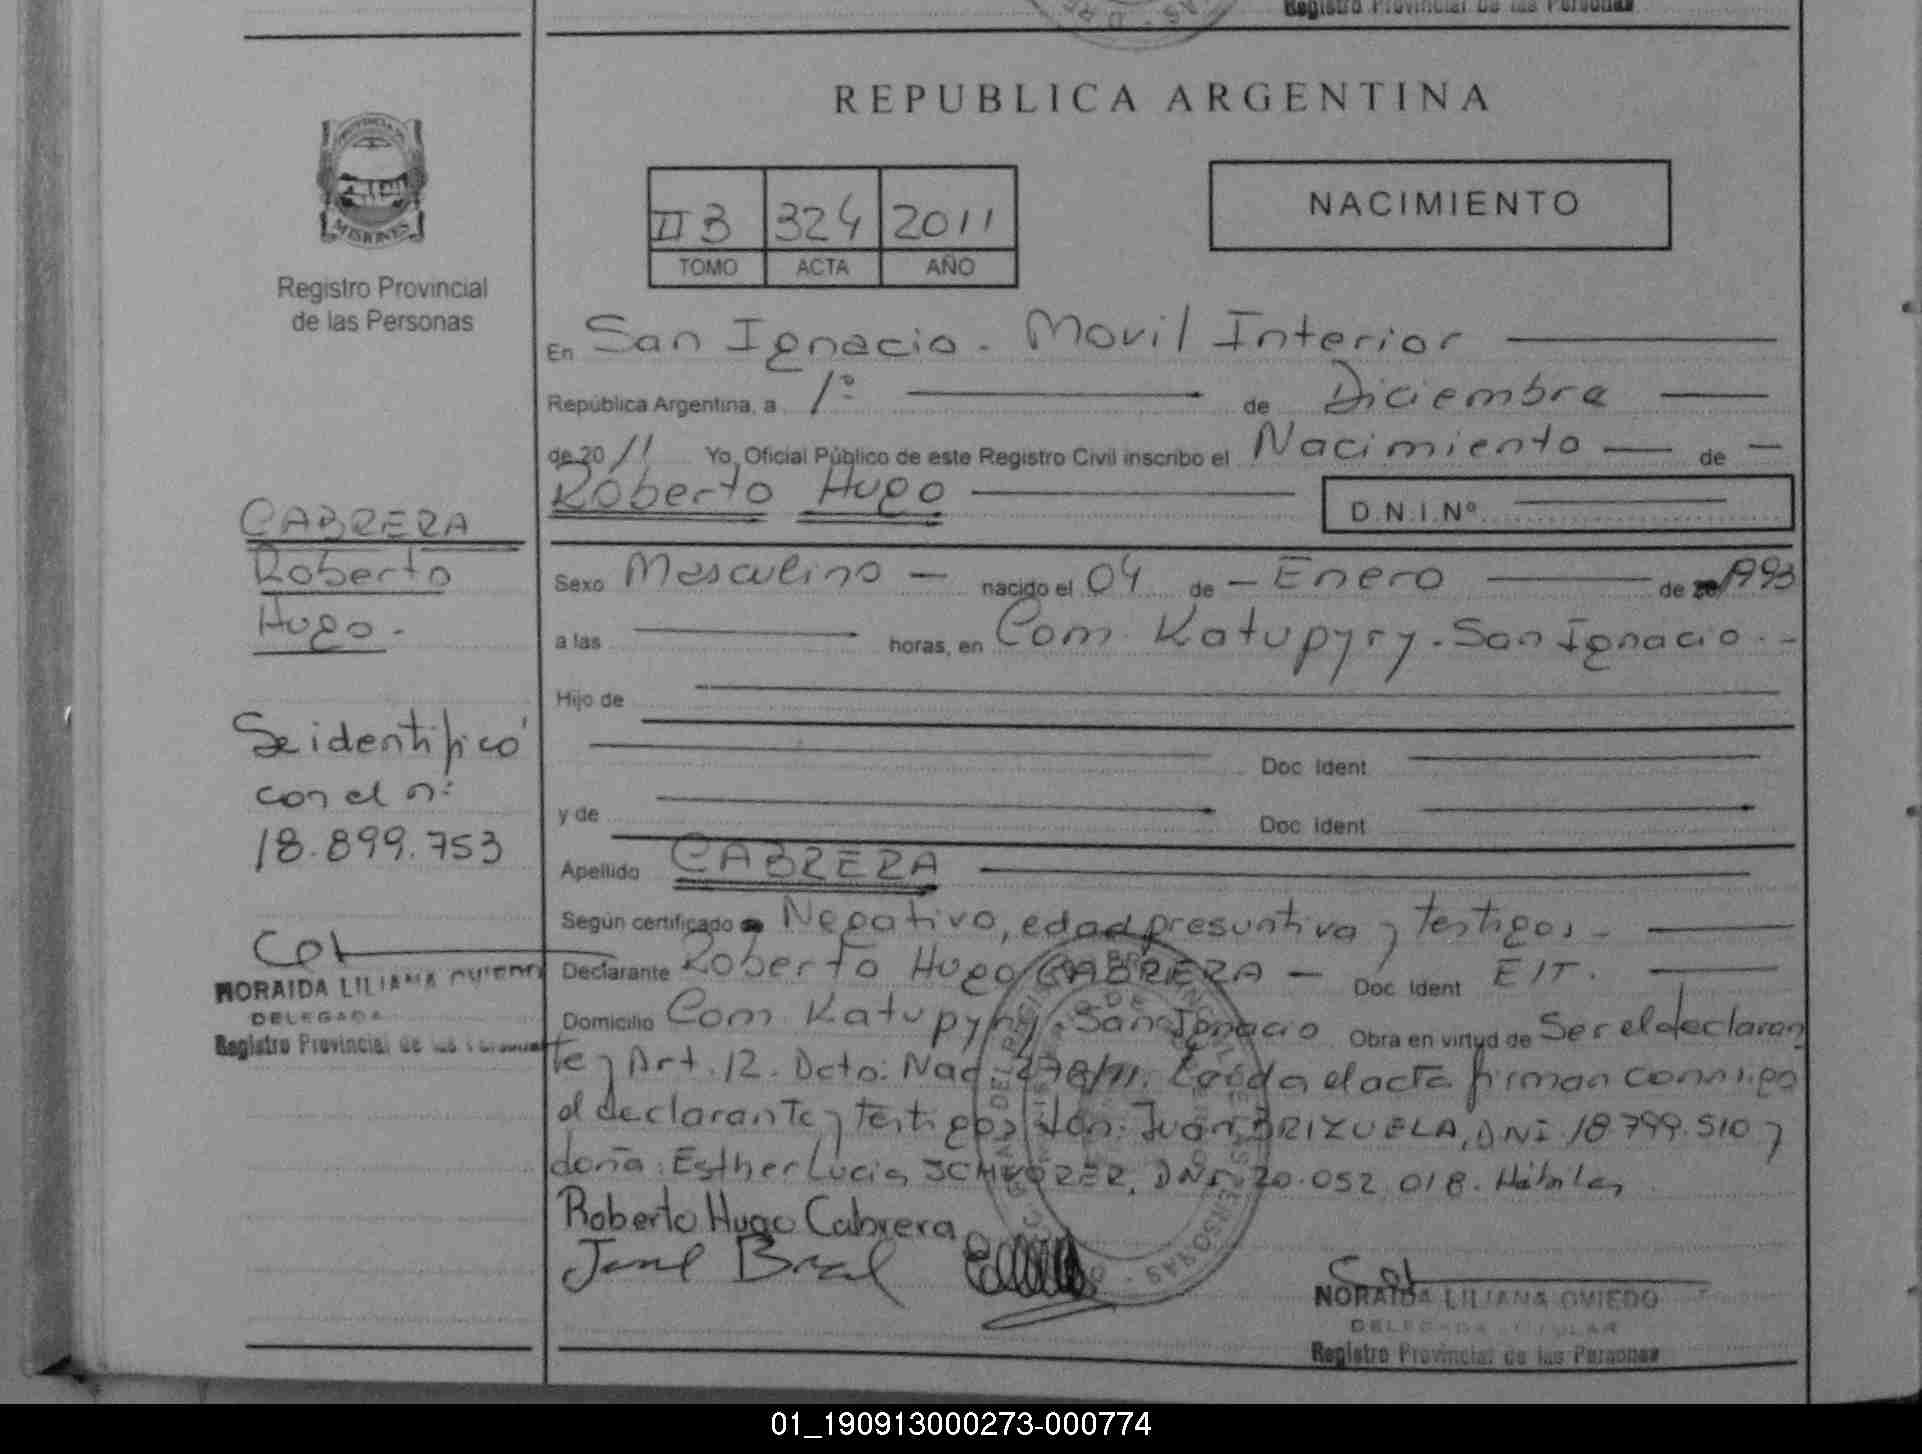 Registro Provincial de las Personas
REPUBLICA ARGENTINA
MISIONES
Registro Provincial
de las Personas
II B 324 2011
TOMO ACTA AÑO
NACIMIENTO
En San Ignacio - Movil Interior
República Argentina, a 1º de Diciembre
de 20 11 Yo, Oficial Público de este Registro Civil inscribo el Nacimiento de
Roberto Hugo D.N.I.Nº
CABRERA
Roberto
Hugo.-
Sexo Masculino nacido el 04 de Enero de 1993
a las horas, en Com. Katupyry - San Ignacio.-
Hijo de
Doc Ident
y de
Doc Ident
Se identificó
con el nº
18.899.753
NORAIDA LILIANA OVIEDO
DELEGADA
Registro Provincial de las Personas
Apellido CABRERA
Según certificado Negativo, edad presuntiva y testigos -
Declarante Roberto Hugo CABRERA - Doc Ident EIT.
Domicilio Com. Katupyry San Ignacio Obra en virtud de Ser el declaran
te y Art. 12. Dcto. Nac 278/11. Leída el acta firman conmigo
el declarante y testigos don: Juan BRIZUELA, DNI 18.799.510 y
doña: Esther Lucia DNI 20.052.018. Hábiles
Roberto Hugo Cabrera
NORAIDA LILIANA OVIEDO
DELEGADA TITULAR
Registro Provincial de las Personas
01_190913000273-000774